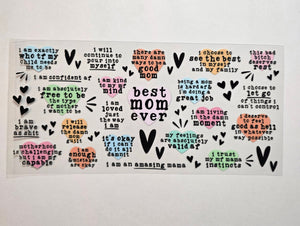 i am exactly
who tf my
child needs
me to be
i will
continue to
pour into
myself
there are
many damn
ways to be a
good
mom
i choose to
see the best
in myself
and my family
this bad
bitch
deserves
rest
i am confident af
i am kind
to my
mind
best
mom
ever
being a mom
is hard &
i'm doing a
great job
i choose to
let go
of things i
can't control
i am absolutely
free to be
the type
of mother
i want to be
i am
loved
just the
way
i am
i am living
in the damn
moment
i am
brave
as shit
i will
release the
damn
guilt
i deserve
to feel
good as hell
in whatever
way possible
my feelings
are absolutely
valid af
motherhood
is challenging
& i am
capable
i am
enough
it's okay
if i can't
do it all
damnit
i am an amazing mama
i trust
my mf mama
instincts